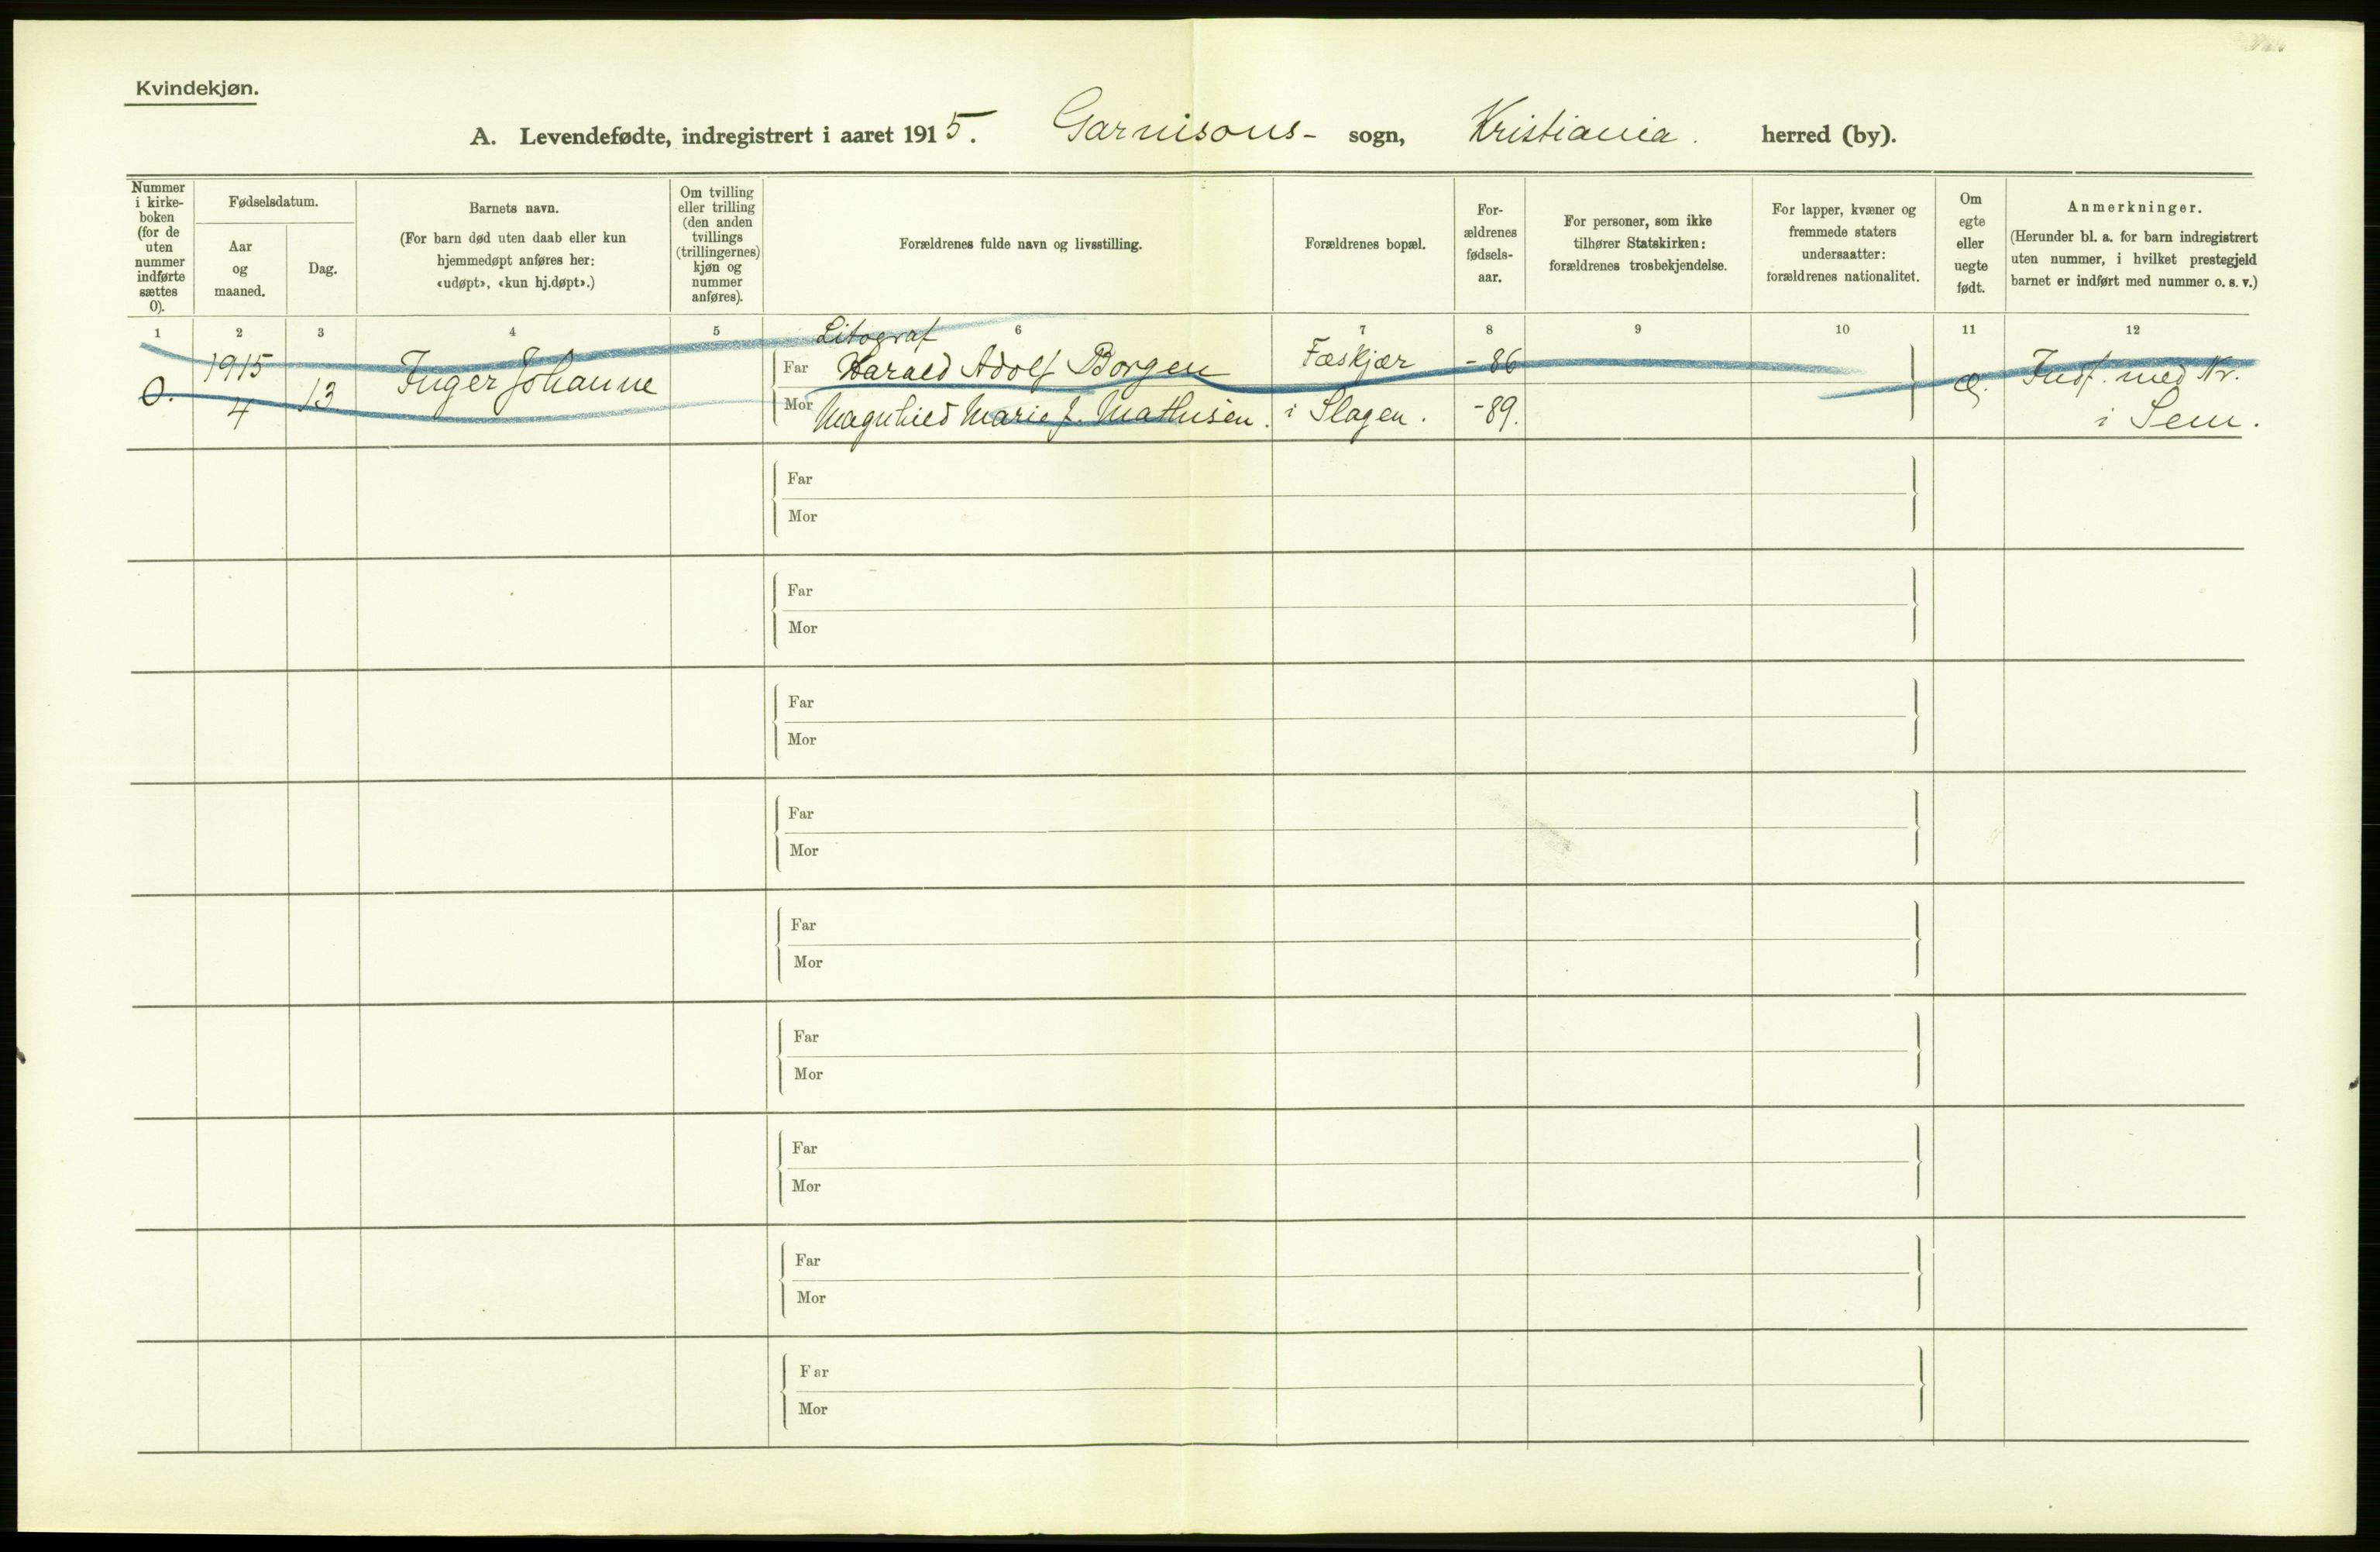 Kvindekjøn.
A. Levendefødte, indregistrert i aaret 1915. Garnisons- sogn, Kristiania. herred (by).
Nummer
i kirke-
boken
(for de
uten
nummer
indførte
sættes
0).
Fødselsdatum.
Aar
og
maaned.
Dag.
Barnets navn.
(For barn død uten daab eller kun
hjemmedøpt anføres her:
«udøpt», «kun hj.døpt».)
Om tvilling
eller trilling
(den anden
tvillings
(trillingernes)
kjøn og
nummer
anføres).
Forældrenes fulde navn og livsstilling.
Forældrenes bopæl.
For-
ældrenes
fødsels-
aar.
For personer, som ikke
tilhører Statskirken:
forældrenes trosbekjendelse.
For lapper, kvæner og
fremmede staters
undersaatter:
forældrenes nationalitet.
Om
egte
eller
uegte
født.
Anmerkninger.
(Herunder bl. a. for barn indregistrert
uten nummer, i hvilket prestegjeld
barnet er indført med nummer o. s. v.)
1 2 3 4 5 6 7 8 9 10 11 12
0.
1915
4
13
Inger Johanne
Litograf
Far Harald Adolf Borgen
Mor Magnhild Marie J. Mathisen.
Fæskjær
i Slagen.
-86
-89.
e.
Indf. med Nr.
i Sem.
Far
Mor
Far
Mor
Far
Mor
Far
Mor
Far
Mor
Far
Mor
Far
Mor
Far
Mor
Far
Mor